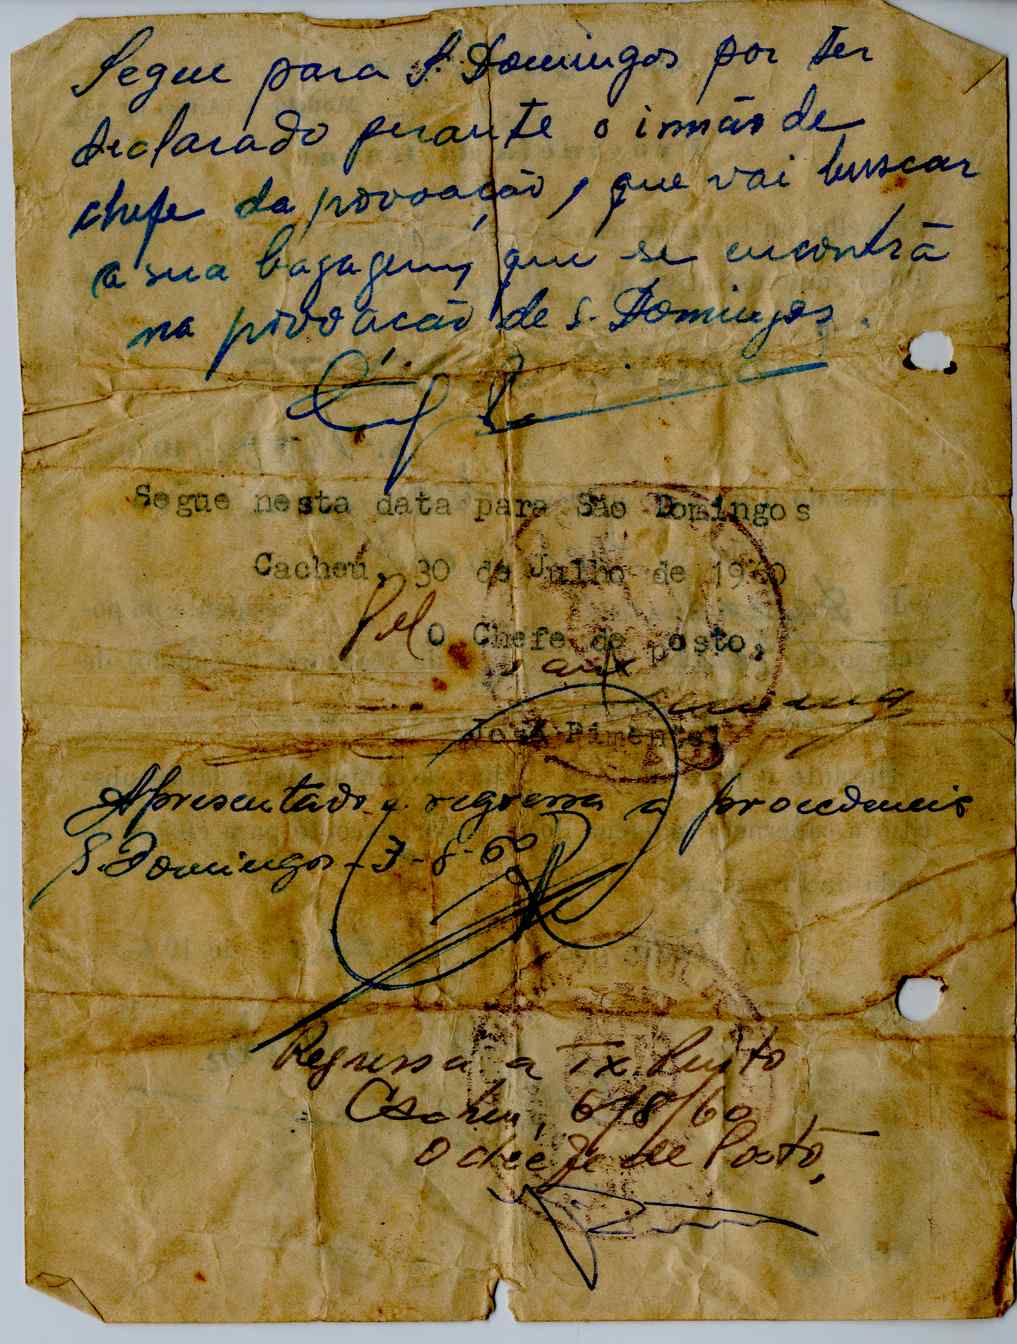 Segue para S. Domingos por ter
declarado perante o irmão de
chefe da povoação, que vai buscar
a sua bagagem, que se encontrã
na povoacão de S. Domingos.
Segue nesta data para São Domingos
Cacheu, 30 de Julho de 1960
Pel O Chefe de posto,
José Pimentel
Apresentado e regressa a procedencia
S. Domingos - 3-8-60
Regressa a Tx. Pinto
Cacheu, 6/8/60
O chefe de Posto,